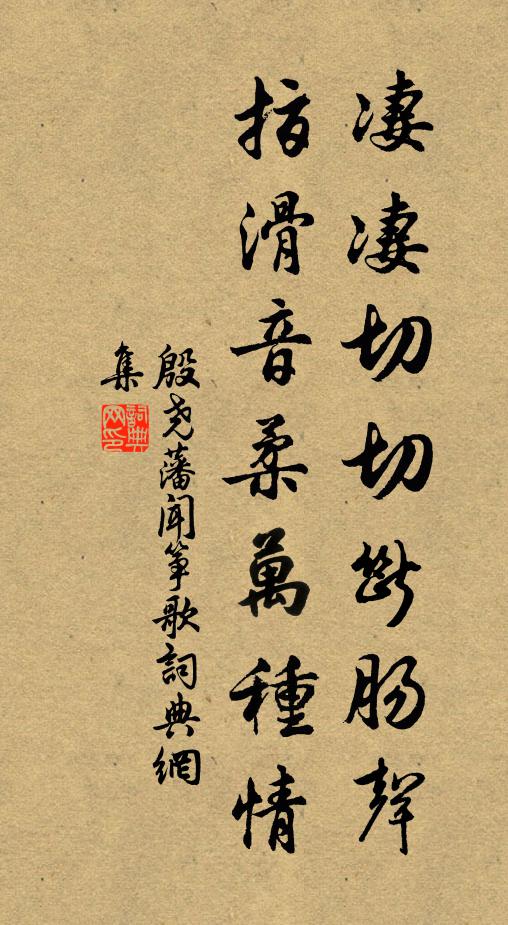 凄凄切切斷腸聲
指滑音柔萬種情
殷尧藩聞箏歌詞典網
集
詞典
网印